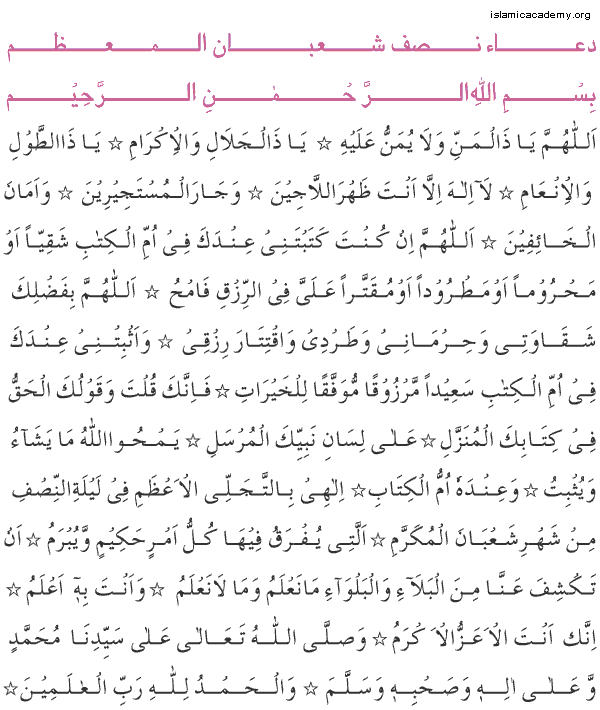 islamicacademy.org
دعاء نصف شعبان المعظم
بِسْمِ اللهِ الرَّحْمٰنِ الرَّحِيْمِ
اَللّٰهُمَّ يَا ذَالْمَنِّ وَلَا يُمَنُّ عَلَيْهِ ☆ يَا ذَالْجَلَالِ وَالْاِكْرَامِ ☆ يَا ذَاالطَّوْلِ
وَالْاِنْعَامِ ☆ لَآ اِلٰهَ اِلَّا اَنْتَ ظَهْرَاللَّاجِيْنَ ☆ وَجَارَالْمُسْتَجِيْرِيْنَ ☆ وَاَمَانَ
الْخَائِفِيْنَ ☆ اَللّٰهُمَّ اِنْ كُنْتَ كَتَبْتَنِىْ عِنْدَكَ فِىْ اُمِّ الْكِتٰبِ شَقِيّاً اَوْ
مَحْرُوْماً اَوْمَطْرُوْداً اَوْمُقَتَّراً عَلَىَّ فِى الرِّزْقِ فَامْحُ ☆ اَللّٰهُمَّ بِفَضْلِكَ
شَقَاوَتِى وَحِرْمَانِىْ وَطَرْدِىْ وَاقْتِتَارَ رِزْقِىْ ☆ وَاَثْبِتْنِىْ عِنْدَكَ
فِىْ اُمِّ الْكِتٰبِ سَعِيْداً مَّرْزُوْقًا مُّوَفَّقًا لِلْخَيْرَاتِ ☆ فَاِنَّكَ قُلْتَ وَقَوْلُكَ الْحَقُّ
فِىْ كِتَابِكَ الْمُنَزَّلِ ☆ عَلٰى لِسَانِ نَبِيِّكَ الْمُرْسَلِ ☆ يَمْحُوااللهُ مَا يَشَآءُ
وَيُثْبِتُ ☆ وَعِنْدَهٗ اُمُّ الْكِتَابِ ☆ اِلٰهِىْ بِالتَّجَلِّى الْاَعْظَمِ فِىْ لَيْلَةِالنِّصْفِ
مِنْ شَهْرِشَعْبَانَ الْمُكَرَّمِ ☆ اَلَّتِى يُفْرَقُ فِيْهَا كُلُّ اَمْرٍحَكِيْمٍ وَّيُبْرَمُ ☆ اَنْ
تَكْشِفَ عَنَّا مِنَ الْبَلَآءِ وَالْبَلْوَآءِ مَانَعْلَمُ وَمَا لَانَعْلَمُ ☆ وَاَنْتَ بِهٖٓ اَعْلَمُ ☆
اِنَّكَ اَنْتَ الْاَعَزُّالْاَكْرَمُ ☆ وَصَلَّى اللّٰهُ تَعَالٰى عَلٰى سَيِّدِنَا مُحَمَّدٍ
وَّعَلٰى اٰلِهٖ وَصَحْبِهٖ وَسَلَّمَ ☆ وَالْحَمْدُ لِلّٰهِ رَبِّ الْعٰلَمِيْنَ ☆